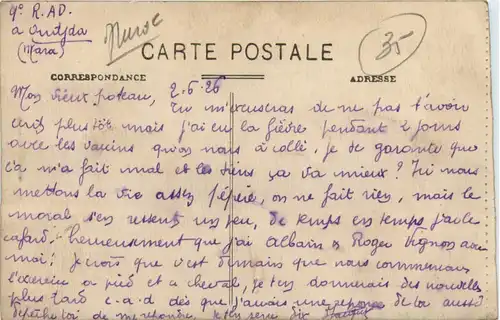 9e R.A.D.
à Oudjda
(Maroc)
Maroc
35
CARTE POSTALE
CORRESPONDANCE
ADRESSE
Mon vieux poteau, 2.6.26
Tu m'excuseras de ne pas t'avoir
écrit plus tôt mais j'ai eu la fièvre pendant 2 jours
avec les vaccins qu'on nous a collé, je te garantie que
ça m'a fait mal et les tiens ça va mieux? Ici nous
mettons la vie assez pépère, on ne fait rien, mais le
moral s'en ressent un peu, de temps en temps j'ai le
cafard. heureusement que j'ai Albain et Roger Vignon avec
moi; je crois que c'est demain que nous commençons
l'exercice à pied et à cheval, je t'en donnerais des nouvelles
plus tard c.a.d dès que j'aurais une réponse de toi aussi
dépêche toi de me répondre. je t'en serre dix